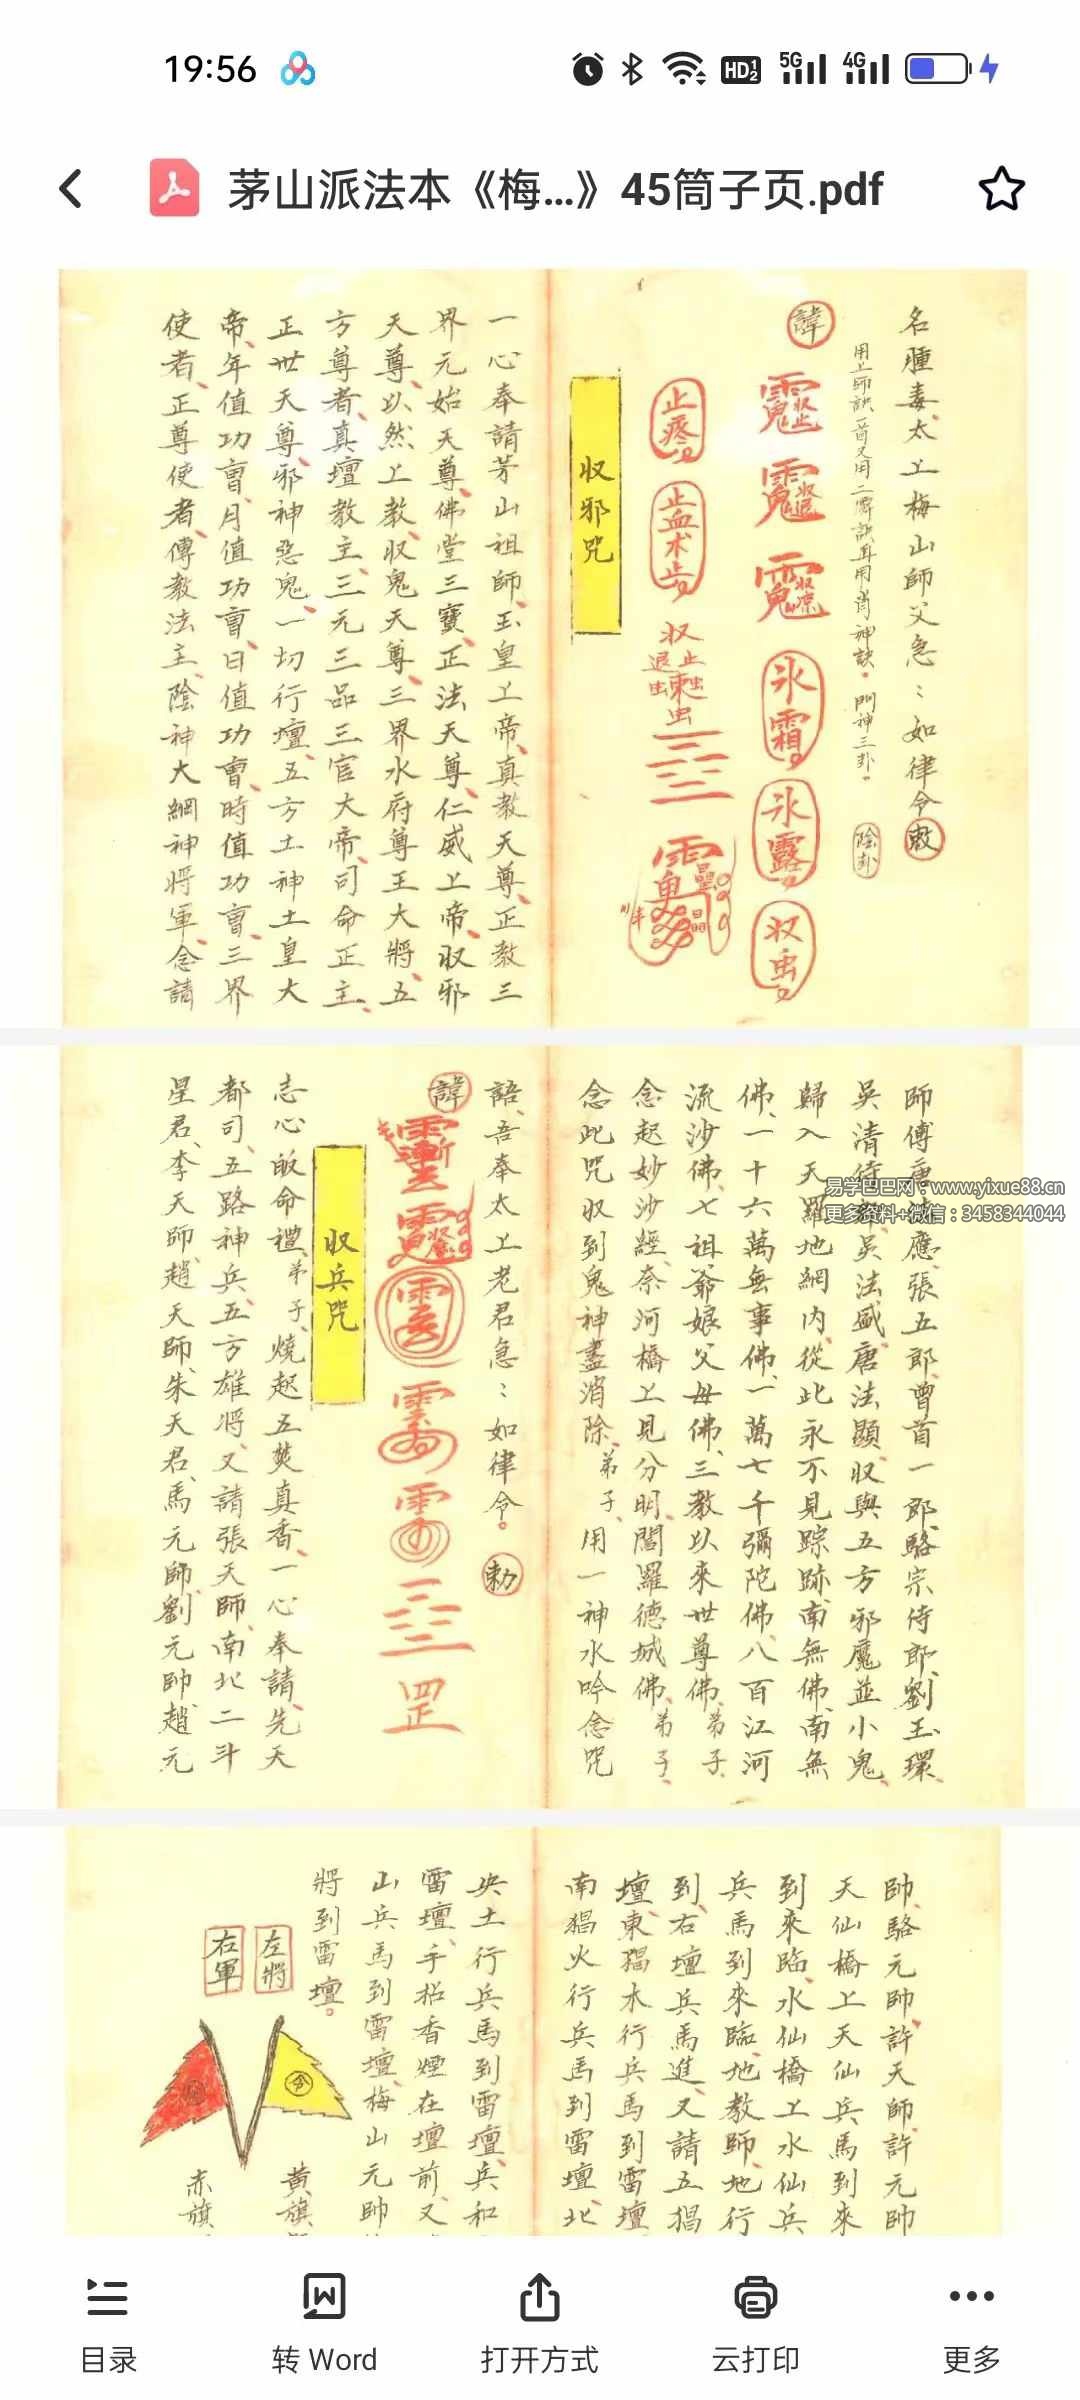 19:56
HD
5G
4G
茅山派法本《梅...》45筒子页.pdf
名腫毒太上梅山師父急：如律令敕
用上師訣一首又用二
門神三卦
陰卦
諱
氷霜
氷露
收虫
止疼
止血
收邪咒
一心奉請茅山祖師玉皇上帝真教天尊正教三
界元始天尊佛堂三寶正法天尊仁威上帝収邪
天尊以然上教収鬼天尊三界水府尊王大將五
方尊者真壇教主三元三品三官大帝司命正主
正世天尊邪神惡鬼一切行壇五方土神土皇大
帝年值功曹月值功曹日值功曹時值功曹三界
使者正尊使者傳教法主陰神大綱神將軍念請
師傅唐法應張五郎曾首一郎駱宗侍郎劉玉環
吳清侍吳法盛唐法顯収與五方邪魔並小鬼
歸入天羅地網內從此永不見踪跡南無佛南無
佛一十六萬無事佛一萬七千彌陀佛八百江河
流沙佛七祖爺娘父母佛三教以來世尊佛弟子
念起妙沙經奈河橋上見分明閻羅德城佛弟子
念此咒収到鬼神盡消除弟子用一神水吟念咒
易学巴巴网：www.yixue88.cn
更多资料+微信：3458344044
語吾奉太上老君急：如律令。勅
諱
罡
収兵咒
志心皈命禮弟子燒起五炷真香一心奉請先天
都司五路神兵五方雄將又請張天師南北二斗
星君李天師趙天師朱天君馬元師劉元帥趙元
帥駱元帥許天師許元帥
天仙橋上天仙兵馬到來
到來臨水仙橋上水仙兵
兵馬到來臨地教師地行
到右壇兵馬進又請五猖
壇東猖木行兵馬到雷壇
南猖火行兵馬到雷壇北
央土行兵馬到雷壇兵和
雷壇手招香煙在壇前又
山兵馬到雷壇梅山元帥
將到雷壇。
左將
右軍
令
黃旗
赤旗
目录
转 Word
打开方式
云打印
更多